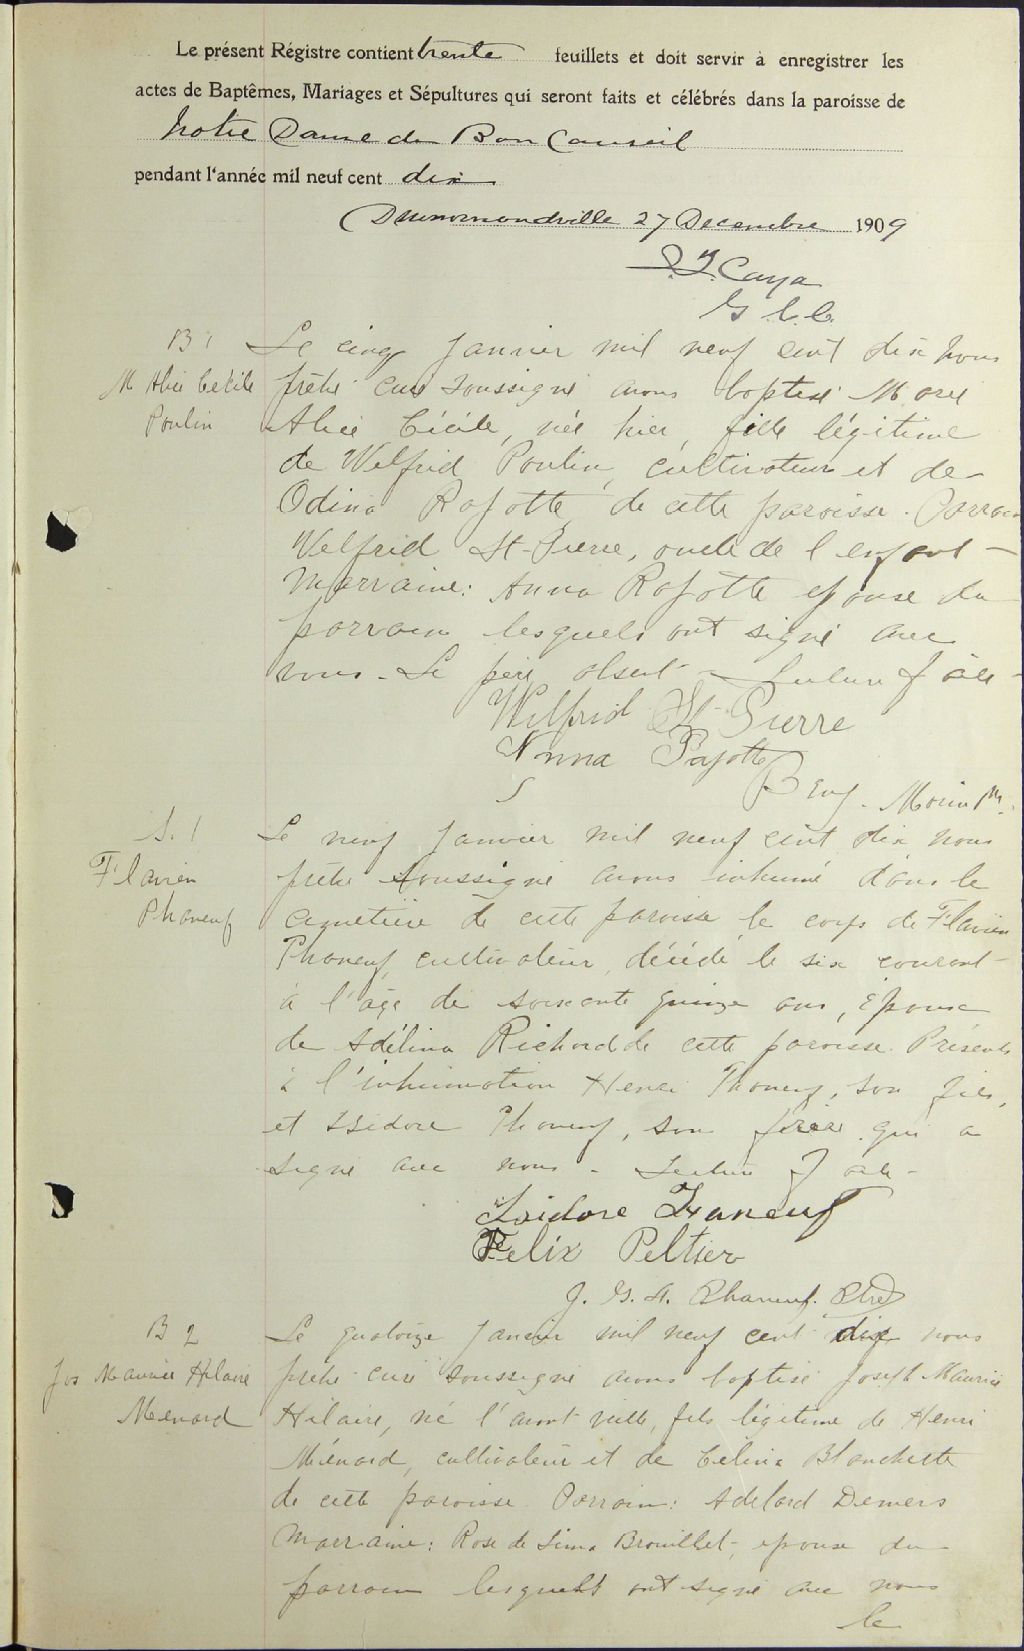 Le présent Régistre contient trente feuillets et doit servir à enregistrer les
actes de Baptêmes, Mariages et Sépultures qui seront faits et célébrés dans la paroisse de
Notre Dame du Bon Conseil
pendant l'année mil neuf cent dix
Drummondville 27 Decembre 1909
Caya
G. C. C.
B 1
M Alice Cécile
Poulin
Le cinq Janvier mil neuf cent dix nous
prêtre curé soussigné avons baptisé Marie
Alice Cécile, née hier, fille légitime
de Welfrid Poulin, cultivateur et de
Odina Rajotte de cette paroisse. Parrain
Welfrid St-Pierre, oncle de l'enfant -
Marraine: Anna Rajotte épouse du
parrain lesquels ont signé avec
nous - Le père absent - Lecture faite -
Wilfrid St-Pierre
Anna Rajotte
Benj. Morin Ptre.
S. 1
Flavien
Phaneuf
Le neuf Janvier mil neuf cent dix nous
prêtre soussigné avons inhumé dans le
cimetière de cette paroisse le corps de Flavien
Phaneuf, cultivateur, décédé le six courant
à l'âge de soixante quinze ans, époux
de Adélina Richard de cette paroisse. Présents
à l'inhumation Henri Phaneuf, son fils,
et Isidore Phaneuf, son frère qui a
signé avec nous - Lecture faite -
Isidore Faneuf
Felix Peltier
J. Phaneuf. Ptre
B 2
Jos Maurice Hilaire
Menard
Le quatorze Janvier mil neuf cent dix nous
prêtre curé soussigné avons baptisé Joseph Maurice
Hilaire, né l'avant veille, fils légitime de Henri
Ménard, cultivateur et de Célina Blanchette
de cette paroisse. Parrain: Adelard Demers
Marraine: Rose de Lima Brouillet, épouse du
parrain lesquels ont signé avec nous
le